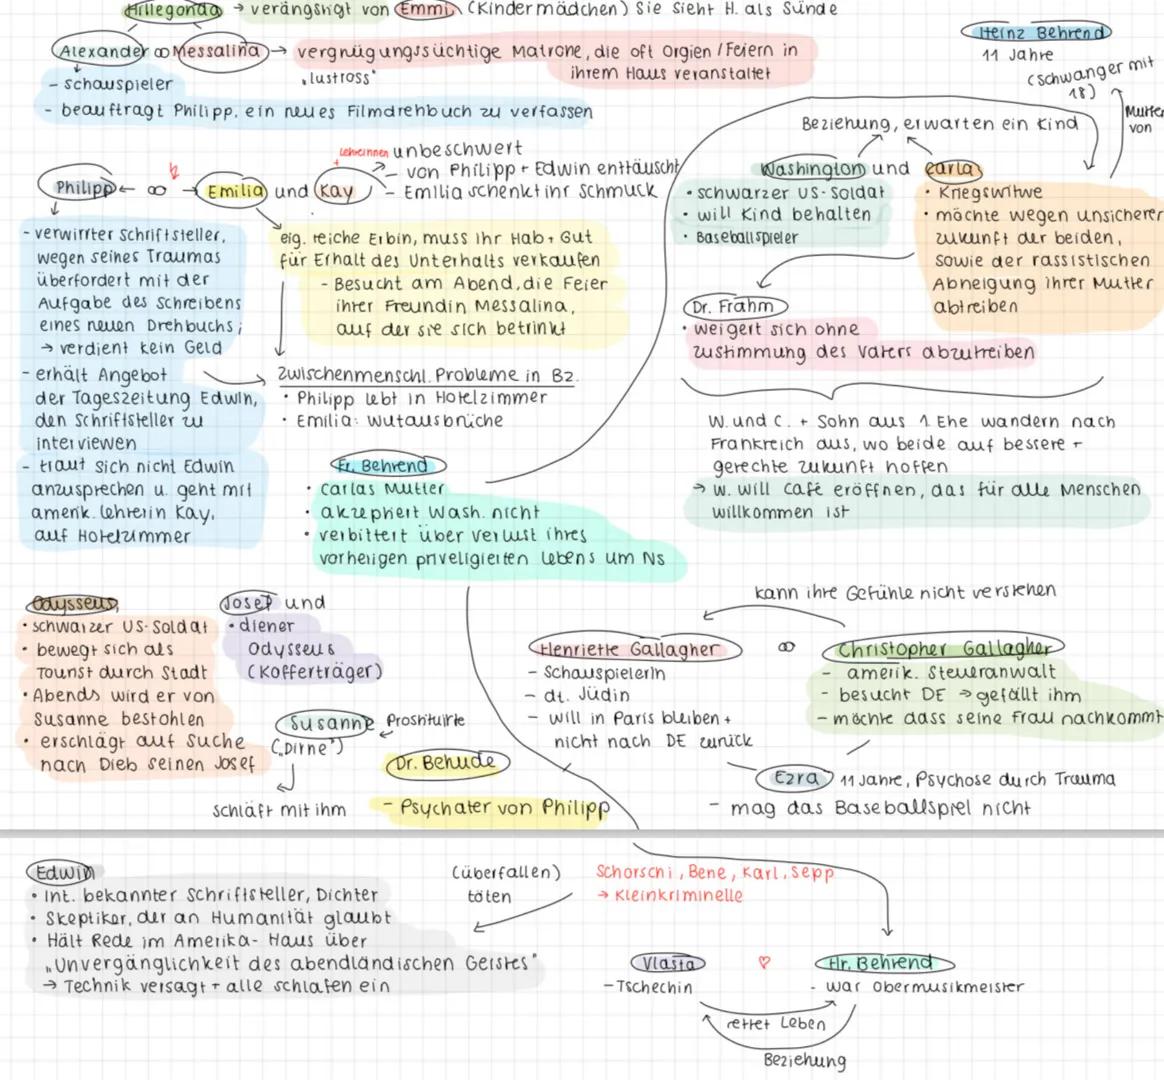 Hillegonda → verängstigt von Emmi (Kindermädchen) Sie sieht H. als Sünde
Alexander ∞ Messalina → vergnügungssüchtige Matrone, die oft Orgien / Feiern in
„lustross" ihrem Haus veranstaltet
- schauspieler
- beauftragt Philipp, ein neues Filmdrehbuch zu verfassen
Heinz Behrend
11 Jahre
(schwanger mit
18)
Mutter
von
Beziehung, erwarten ein Kind
Washington und Carla
• schwarzer US-Soldat
• will Kind behalten
• Baseballspieler
• Kriegswitwe
• möchte wegen unsicherer
zukunft der beiden,
sowie der rassistischen
Abneigung ihrer Mutter
abtreiben
Dr. Frahm
• weigert sich ohne
zustimmung des Vaters abzutreiben
W. und C. + Sohn aus 1. Ehe wandern nach
Frankreich aus, wo beide auf bessere +
gerechte zukunft hoffen
→ W. will Café eröffnen, das für alle Menschen
willkommen ist
Philipp ← ∞ → Emilia und Kay
Lehrerinnen
+
unbeschwert
- von Philipp + Edwin enttäuscht
- Emilia schenkt ihr Schmuck
- verwirrter Schriftsteller,
wegen seines Traumas
überfordert mit der
Aufgabe des Schreibens
eines neuen Drehbuchs;
→ verdient kein Geld
- erhält Angebot
der Tageszeitung Edwin,
den Schriftsteller zu
interviewen
- traut sich nicht Edwin
anzusprechen u. geht mit
amerik. Lehrerin Kay,
auf Hotelzimmer
eig. reiche Erbin, muss ihr Hab + Gut
für Erhalt des Unterhalts verkaufen
- Besucht am Abend, die Feier
ihrer Freundin Messalina,
auf der sie sich betrinkt
zwischenmenschl. Probleme in Bz.
• Philipp lebt in Hotelzimmer
• Emilia: wutausbrüche
Fr. Behrend
• Carlas Mutter
• akzeptiert Wash. nicht
• verbittert über verlust ihres
vorherigen priveligierten Lebens um NS
Odysseus,
• schwarzer US-Soldat
• bewegt sich als
Tourist durch Stadt
• Abends wird er von
Susanne bestohlen
• erschlägt auf Suche
nach Dieb seinen Josef
Josef und
• diener
Odysseus
(Kofferträger)
Susanne
Prostituirte
(„Dirne")
schläft mit ihm
Dr. Behude
- Psychater von Philipp
kann ihre Gefühle nicht verstehen
Henriette Gallagher ∞ Christopher Gallagher
- Schauspielerin
- dt. Jüdin
- will in Paris bleiben +
nicht nach DE zurück
- amerik. Steueranwalt
- besucht DE → gefällt ihm
- möchte dass seine Frau nachkommt
Ezra 11 Jahre, Psychose durch Trauma
- mag das Baseballspiel nicht
Edwin
• Int. bekannter Schriftsteller, Dichter
• Skeptiker, der an Humanität glaubt
• Hält Rede im Amerika-Haus über
„Unvergänglichkeit des abendländischen Geistes"
→ Technik versagt + alle schlafen ein
(überfallen)
töten
Schorschi, Bene, Karl, Sepp
→ Kleinkriminelle
Vlasta ♡ Hr. Behrend
- Tschechin
- war Obermusikmeister
rettet Leben
Beziehung